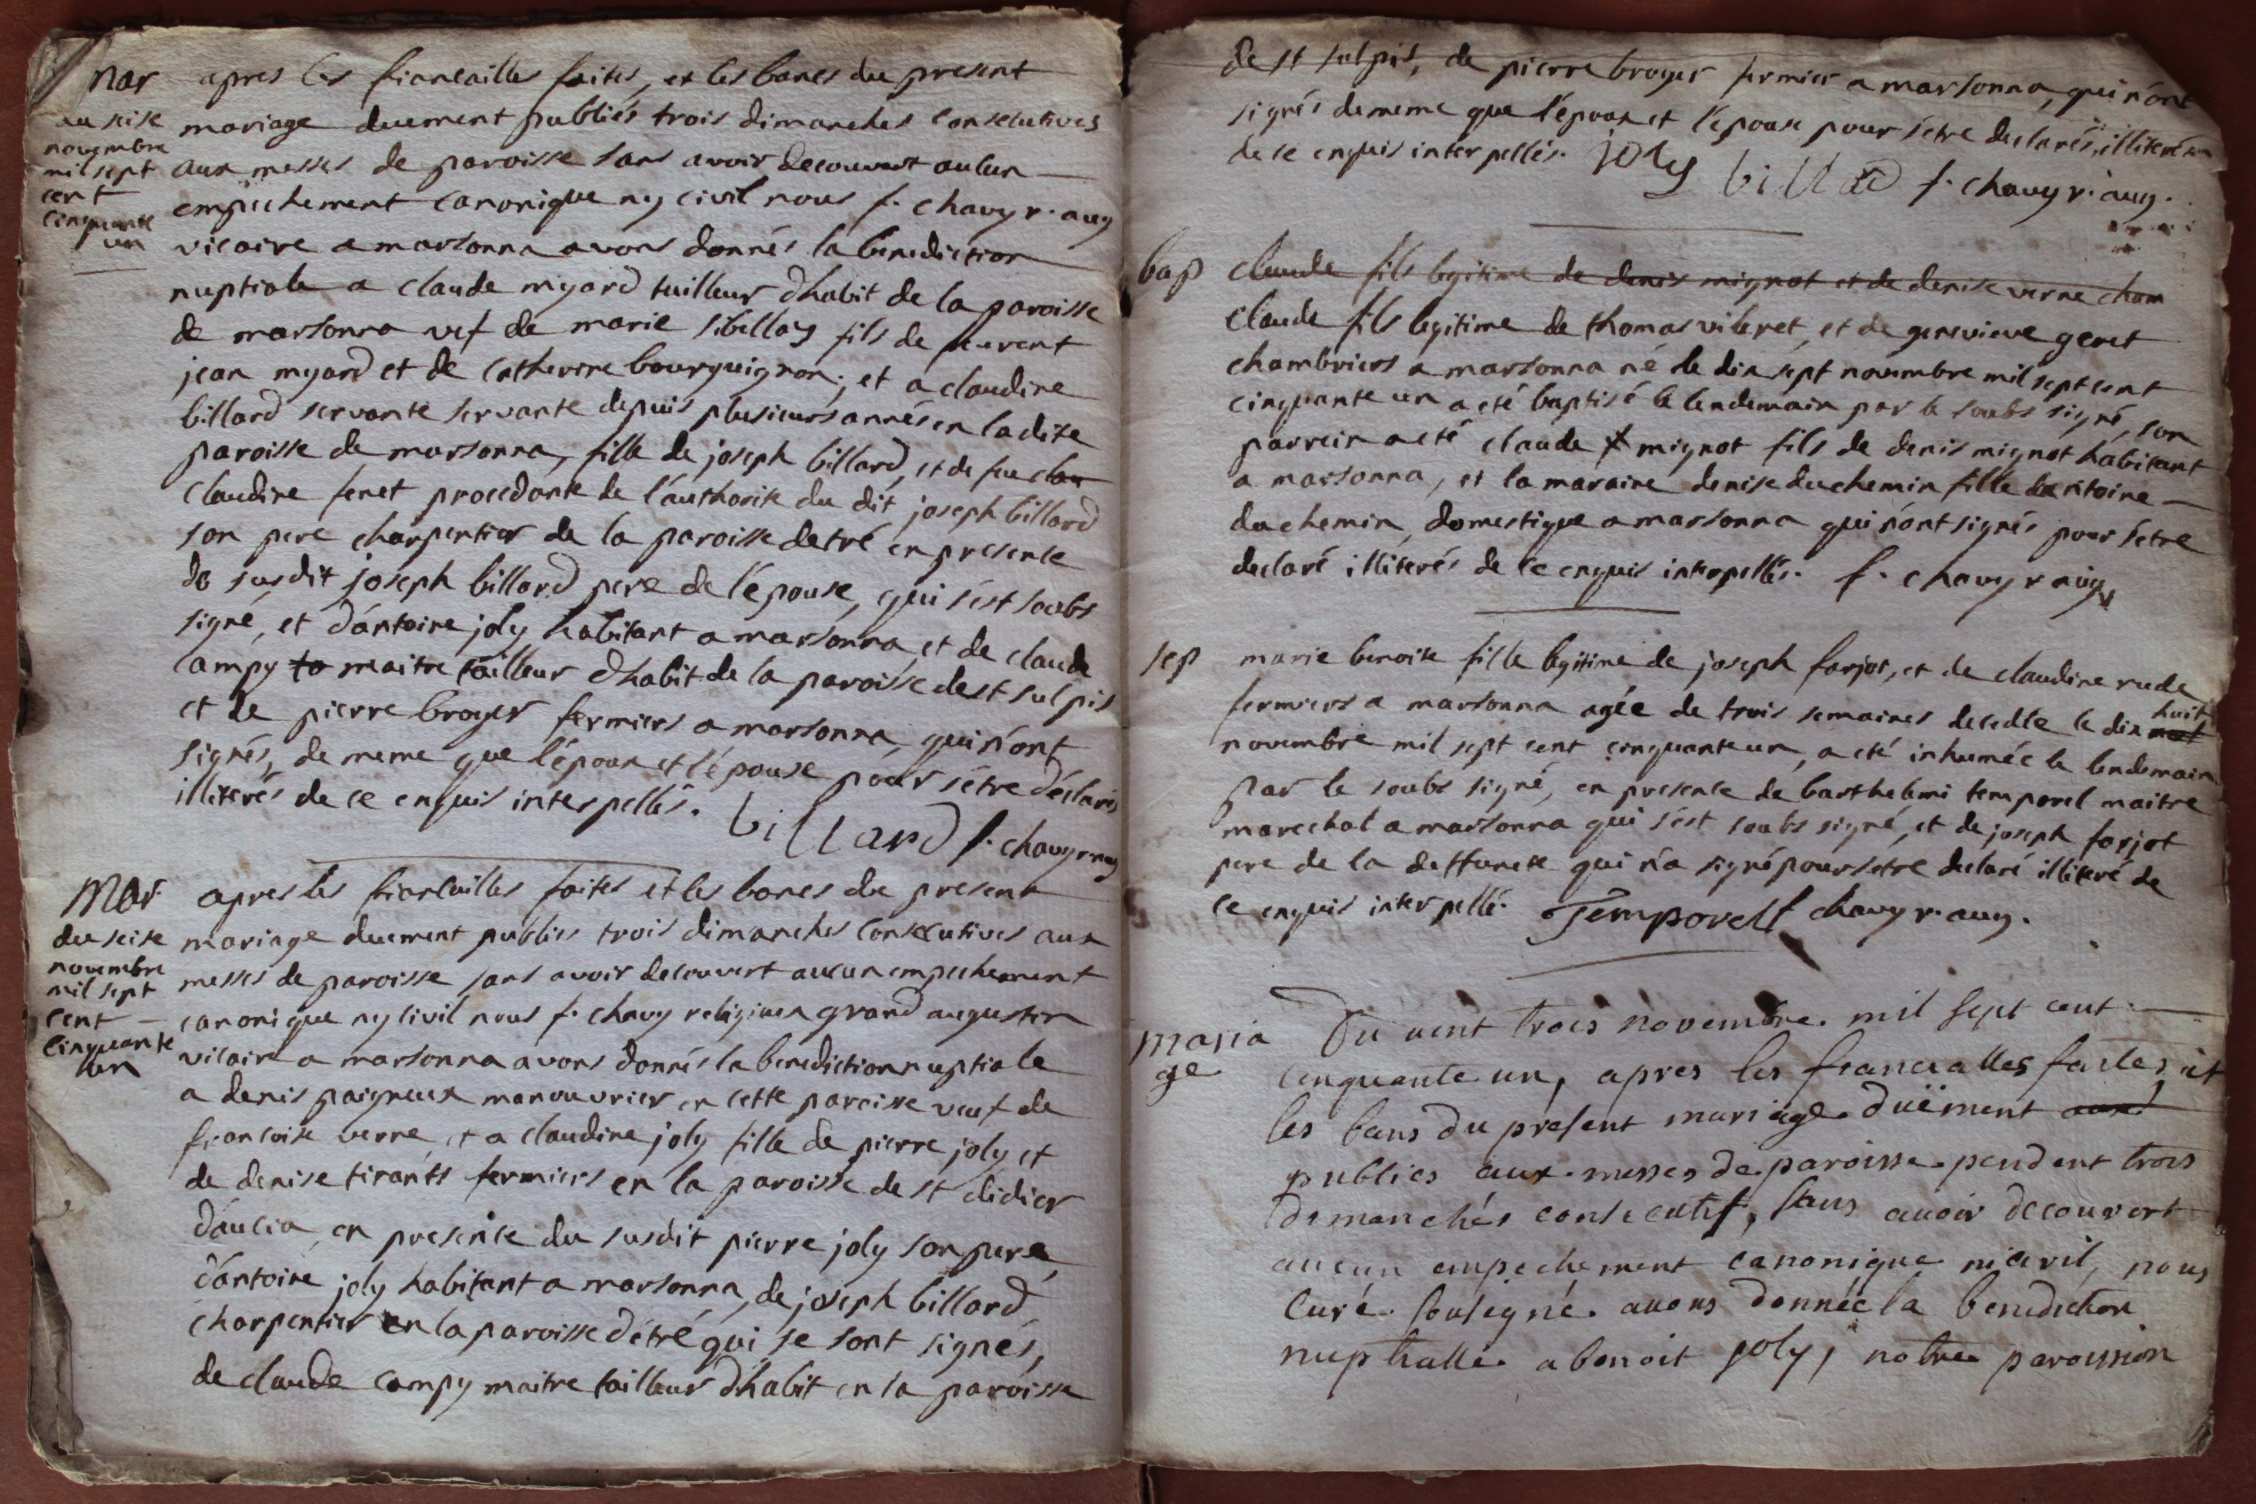 mar
du seise
novembre
mil sept
cent
cinquante
un
apres les fiancailles faites, et les bancs du present
mariage duement publiés trois dimanches consecutives
aux messes de paroisse sans avoir decouvert aucun
empechement canonique ny civil nous f. chavy r. aug
vicaire a marsonna avons donnés la benediction
nuptiale a claude myard tailleur d'habit de la paroisse
de marsonna vef de marie sibellas fils de
jean myard et de catherine bourguignon; et a claudine
billard servante servante depuis plusieurs annés en la dite
paroisse de marsonna, fille de joseph billard, et de feu clau
claudine fenet procedante de l'authorité du dit joseph billard
son pere charpentier de la paroisse detré en presence
du susdit joseph billard pere de l'épouse, qui s'est soubs
signé, et d'antoine joly habitant a marsonna, et de claude
campy to maitre tailleur d'habit de la paroisse de st sulpis
et de pierre broyer fermiers a marsonna, qui n'ont
signés, de meme que l'époux et l'épouse pour s'étre déclarés
illiterés de ce enquis interpellés. billard f. chavy r aug
mar
du seise
novembre
mil sept
cent
cinquante
un
apres les fiancailles faites et les bancs du present
mariage duement publies trois dimanches consecutives aux
messes de paroisse sans avoir decouvert aucun empechement
canonique ny civil nous f. chavy religieux grand augustin
vicaire a marsonna avons donnés la benediction nuptiale
a denis paigneux manouvrier en cette paroisse veuf de
francoise verne, et a claudine joly fille de pierre joly et
de denise tirants fermiers en la paroisse de st didier
d'aucia, en presence du susdit pierre joly son pere,
d'antoine joly habitant a marsonna, de joseph billard
charpentier en la paroisse d'étré qui se sont signés,
de claude campy maitre tailleur d'habit en la paroisse
de st sulpis, de pierre broyer fermier a marsonna, qui n'ont
signés de meme que l'époux et l'épouse pour s'étre declarés illiterés
de ce enquis interpellés. joly billard f. chavy r. aug.
bap
claude fils legitime de denis mignot et de denise verne cham
claude fils legitime de thomas viberet, et de genevieve geret
chambriers a marsonna né le dix sept novembre mil sept cent
cinquante un a été baptisé le lendemain par le soubs signé, son
parrein a eté claude mignot fils de denis mignot habitant
a marsonna, et la maraine denise duchemin fille d'antoine
duchemin, domestique a marsonna qui n'ont signés pour s'étre
declaré illiterés de ce enquis interpellés. f. chavy r aug
sep
marie benoite fille legitime de joseph farjot, et de claudine rude
fermiers a marsonna agée de trois semaines decedée le dix huit
novembre mil sept cent cinquante un, a eté inhumée le lendemain
par le soubs signé, en presence de barthelemi temporel maitre
marechal a marsonna qui s'est soubs signé, et de joseph farjot
pere de la deffuncte qui n'a signé pour s'etre declaré illiteré de
ce enquis interpellé. Temporel f chavy r. aug.
maria
ge
Du vent trois novembre. mil sept cent
cinquante un, apres les fiancialles faites, et
les bans du present mariage duëment aux
publies aux messes de paroisse pendent trois
dimanchés consecutif, sans avoir decouvert
aucun empechement canonique ni civil, nous
Curé. soussigné. avons donnéé la benediction
nuptialle a benoit joly, notre paroissien